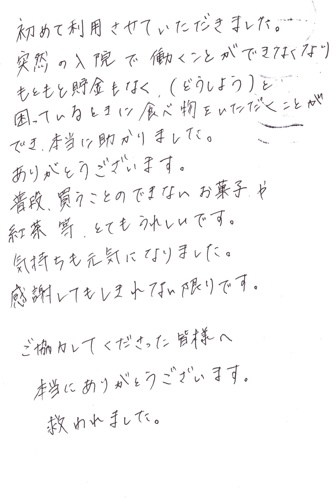 初めて利用させていただきました。
突然の入院で働くことができなくなり
もともと貯金もなく、(どうしよう)と
困っているときに食べ物をいただくことが
でき、本当に助かりました。
ありがとうございます。
普段、買うことのできないお菓子や
紅茶等、とてもうれしいです。
気持ちも元気になりました。
感謝してもしきれない限りです。
ご協力してくださった皆様へ
本当にありがとうございます。
救われました。